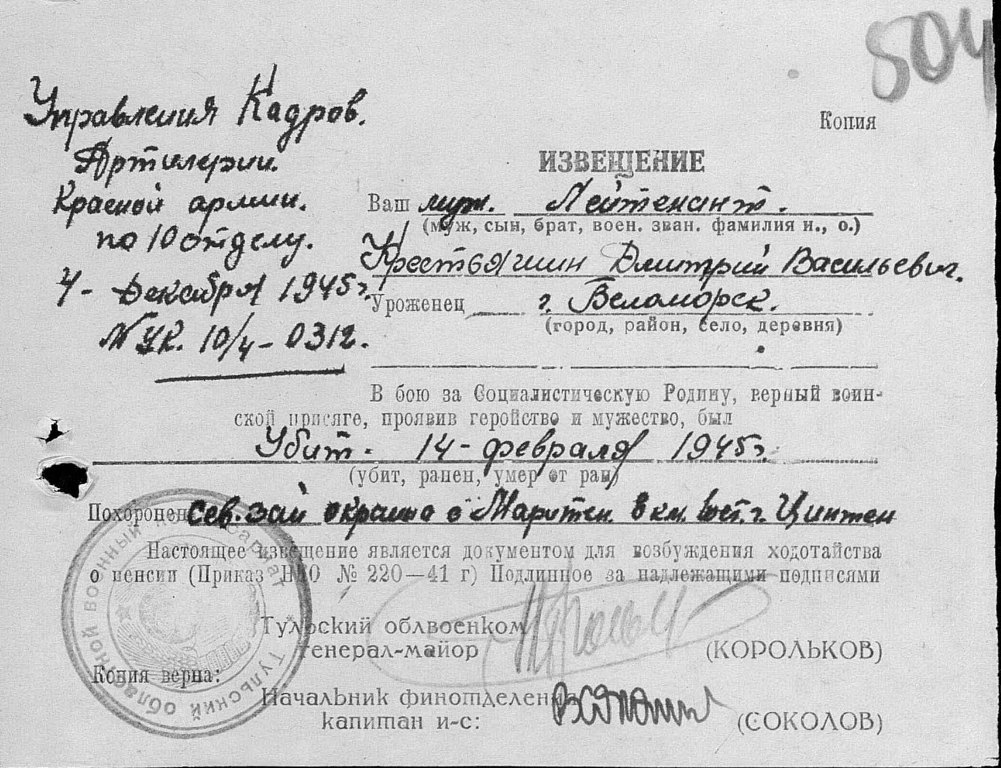 504
Управления Кадров.
Артилерии.
Красной армии.
по 10 отделу.
4 - Декабря 1945 г.
№ УК. 10/4 - 0312.
Копия
ИЗВЕЩЕНИЕ
Ваш муж. Лейтенант.
(муж, сын, брат, воен. зван. фамилия и., о.)
Крестьянинин Дмитрий Васильевич.
Уроженец г. Беломорск.
(город, район, село, деревня)
В бою за Социалистическую Родину, верный воин-
ской присяге, проявив геройство и мужество, был
Убит. 14 - февраля 1945 г.
(убит, ранен, умер от ран)
Похоронен Сев. зап окраина с Маритен 8 км. вост. г. Цинтен
Настоящее извещение является документом для возбуждения ходотайства
о пенсии (Приказ НКО № 220—41 г) Подлинное за надлежащими подписями
Тульский облвоенком
генерал-майор (КОРОЛЬКОВ)
Копия верна:
Начальник финотделения
капитан и-с: (СОКОЛОВ)
Тульский областной военный комиссариат